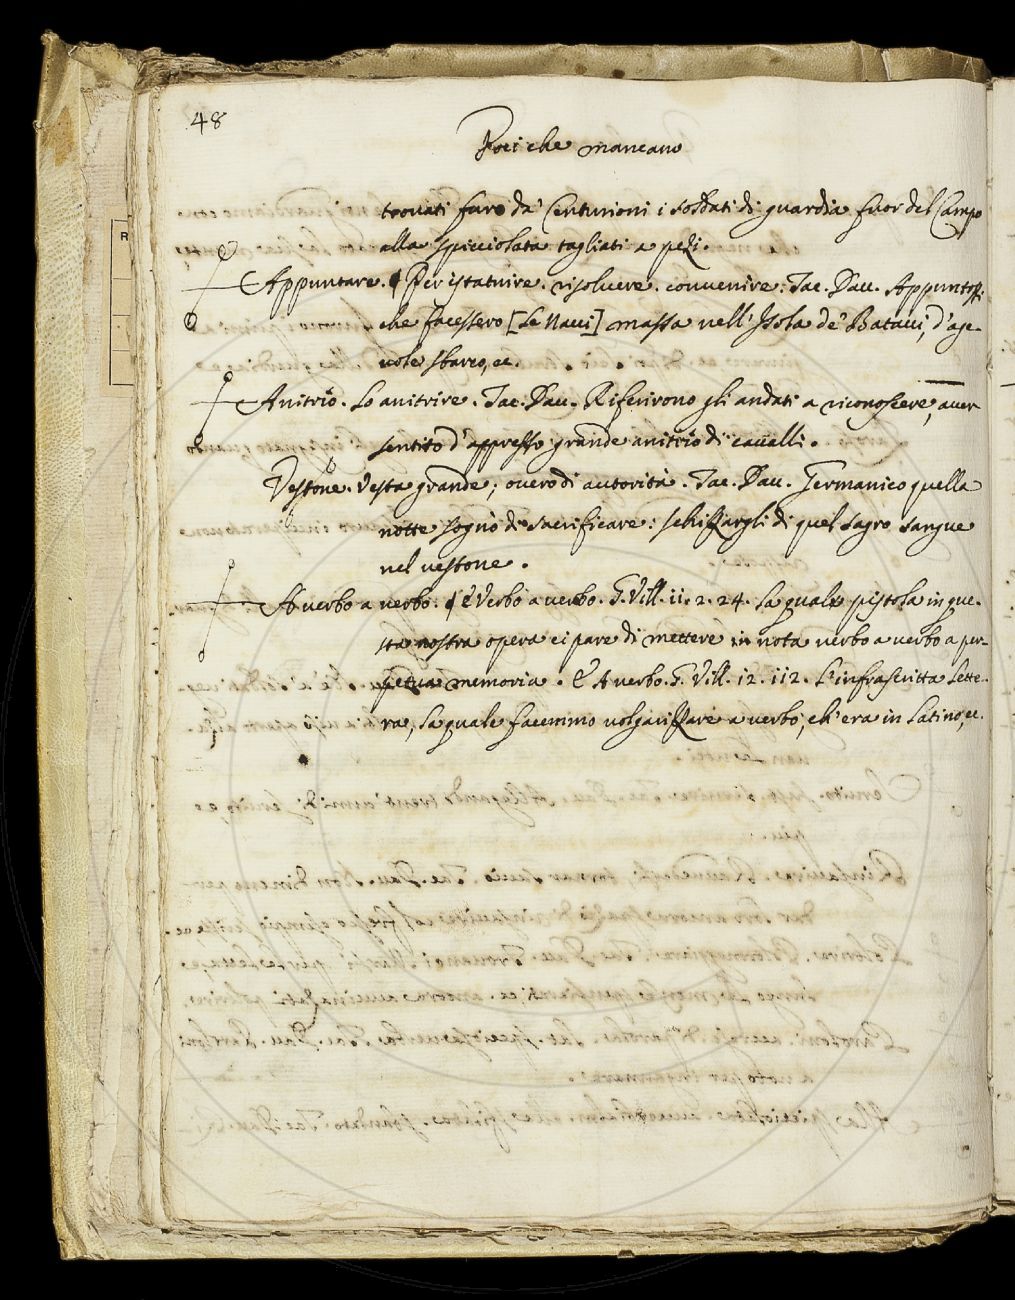 48
Voci che mancano
trovati furo da' Centurioni i soldati di guardia fuor del Campo
alla spicciolata tagliati a pezi.
Appuntare. Per istatuire. risolvere. convenire: Tac. Dav. Appuntossi
che facessero [Le Navi] massa nell' Isola de' Batavi, d'age-
vole sbarco, ec.
Anitrio. Lo anitrire. Tac. Dav. Riferirono gli andati a riconoscere, aver
sentito d'appresso grande anitrio di cavalli.
Vestone. Vesta grande; overo di autorità. Tac. Dav. Germanico quella
notte sognò di sacrificare: schizzargli di quel sagro sangue
nel vestone.
A verbo a verbo. E Verbo a verbo. G. Vill. 11. 2. 24. La quale pistola in que-
sta nostra opera ci pare di mettere in nota verbo a verbo a per-
petua memoria. E A verbo. G. Vill. 12. 112. L'infrascritta Lette-
ra, la quale facemmo volgarizzare a verbo, ch' era in Latino, ec.
R